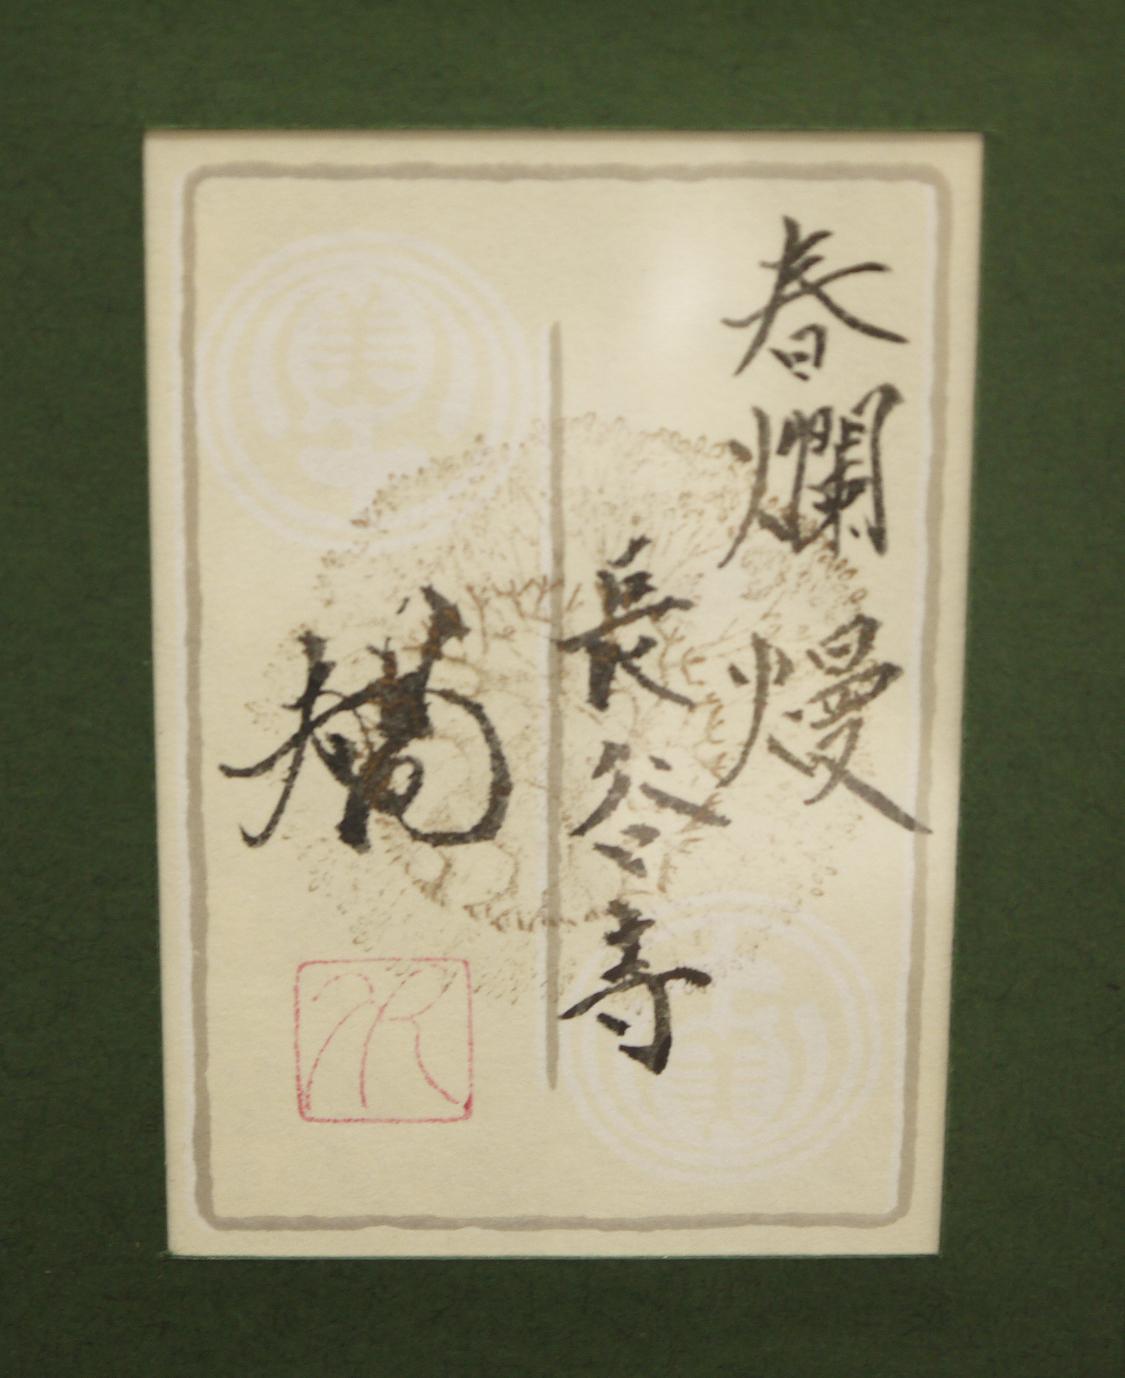 春爛熳
長谷寺
橘